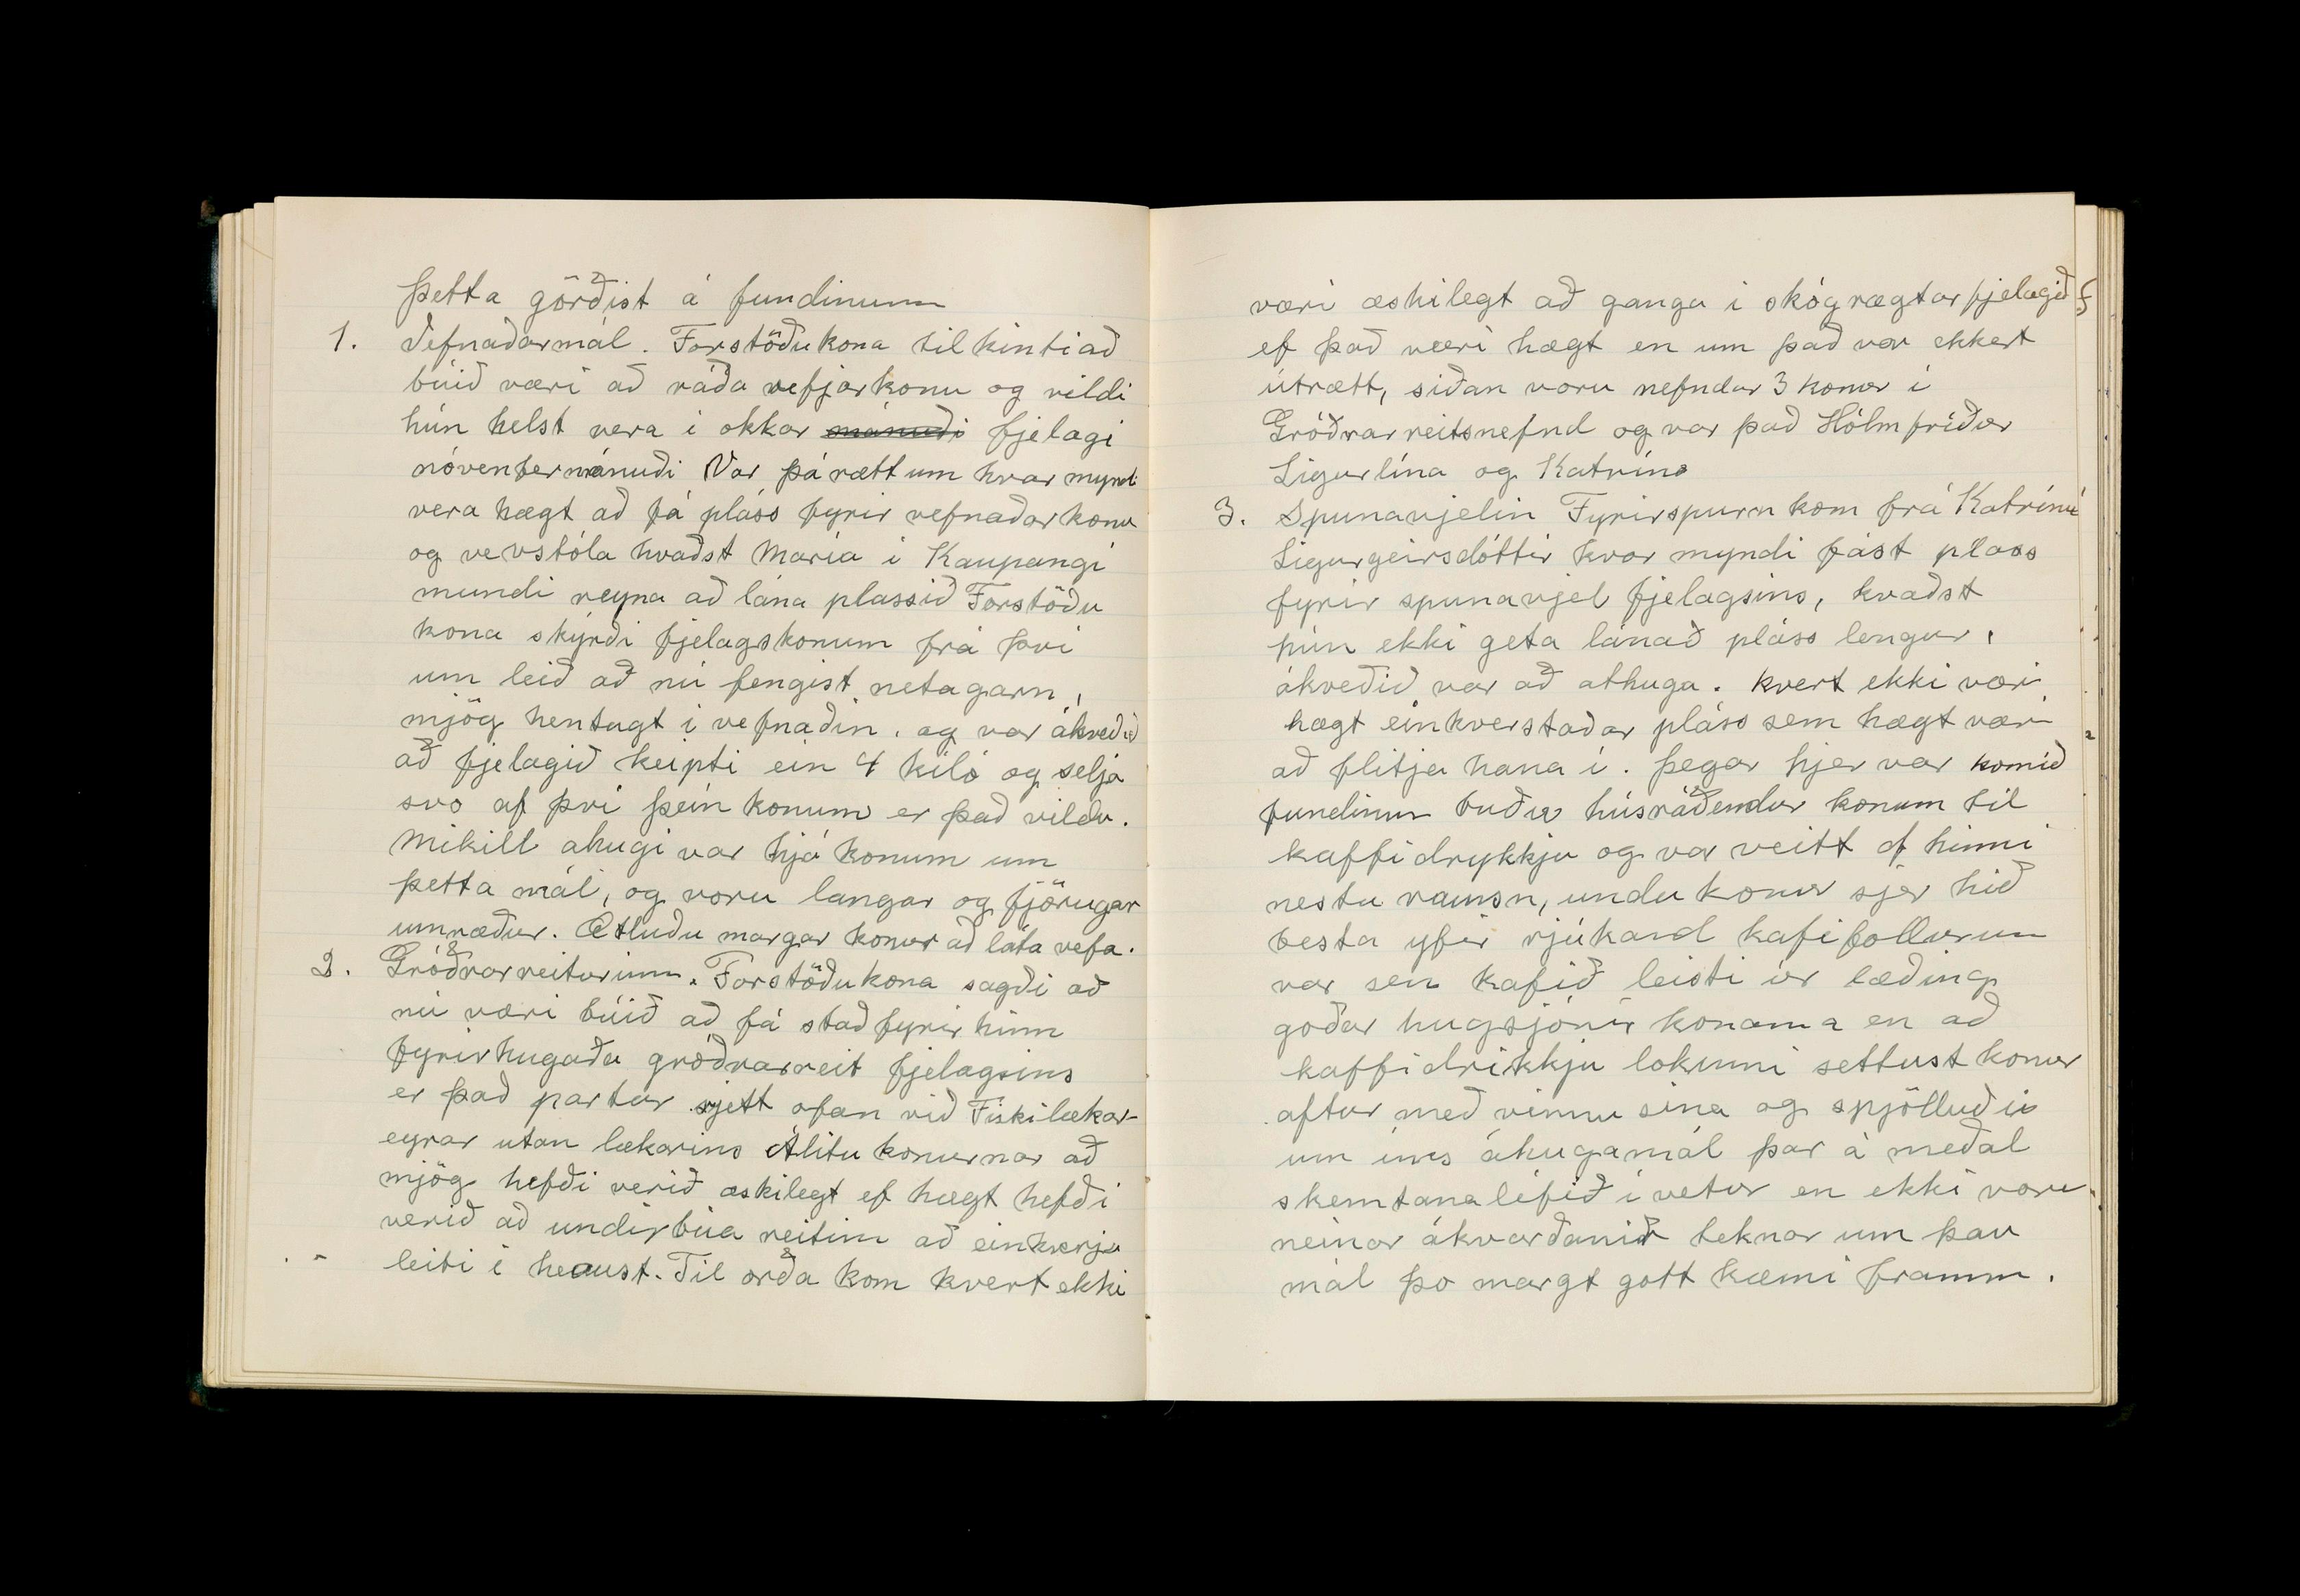 Þetta görðist á fundinum
1. Vefnaðarmál. Forstöðukona tilkinti að
búið væri að ráða vefjarkonu og vildi
hún helst vera i okkar mánuði fjelagi
nóvenbermánuði Var þá rætt um hvar mynd
vera hægt að fá pláss fyrir vefnaðarkonu
og vevstóla hvaðst María i Kaupangi
mundi reyna að lána plassið Forstöðu
kona skýrði fjelagskonum frá þvi
um leið að nú fengist netagarn,
mjög hentugt i vefnaðin. og var ákveðið
að fjelagið keipti ein 4 kíló og selja
svo af þvi þeim konum er það vildu.
Mikill ahugi var hjá konum um
þetta mál, og voru langar og fjörugar
umræður. Ætluðu margar konur að láta vefa.
2. Gróðrarreiturinn. Forstöðukona sagði að
nú væri búið að fá stað fyrir hinn
fyrirhugaða gróðrarreit fjelagsins
er það partur rjett ofan við Fiskilækar-
eyrar utan lækarins Álitu konurnar að
mjög hefði verið æskilegt ef hægt hefði
verið að undirbúa reitinn að einkverju
leiti i heaust. Til orða kom kvert ekki
væri æskilegt að ganga i skógrægtarfjelagið
ef það væri hægt en um það var ekkert
útrætt, siðan voru nefndar 3 konur i
Gróðrarreitsnefnd og var það Hólmfríður
Sigurlína og Katrína
3. Spunavjelin Fyrirspurn kom frá Katrínu
Sigurgeirsdóttir kvar myndi fást plass
fyrir spunavjel fjelagsins, kvaðst
hún ekki geta lánað pláss lengur,
ákveðið var að athuga. kvert ekki væri
hægt einkverstaðar pláss sem hægt væri
að flitja hana i. Þegar hjer var komið
fundinum buðu húsráðendur konum til
kaffidrykkju og var veitt af hinni
nestu rausn, undu konur sjer hið
besta yfir rjúkand kafifollunum
var sem kafið leisti úr læðing
goðar hugsjónir konanna en að
kaffidrikkju lokunni settust konur
aftur með vinnu sina og spjölluðu
um íms áhugamál þar á meðal
skemtanalífið i vetur en ekki voru
neinar ákvarðanir teknar um þau
mál þo margt gott kæmi framm.